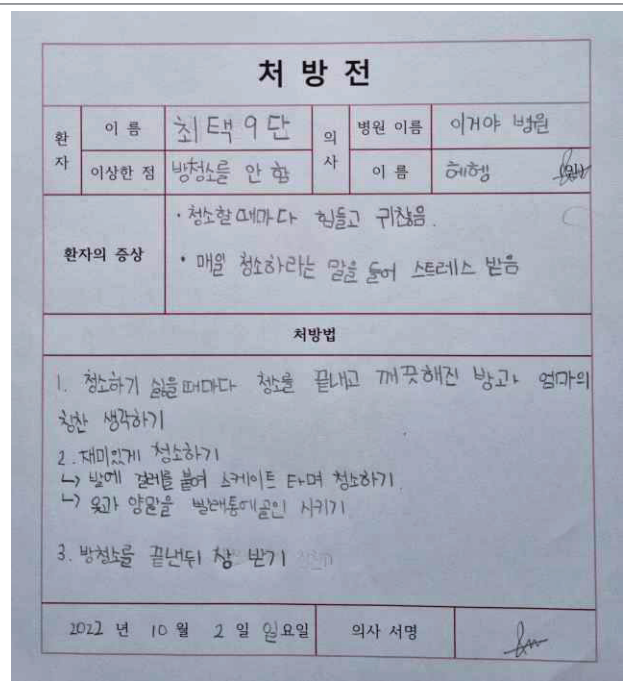 처방전
환자 이름 최택9단 의사 병원 이름 이거야 병원
이상한 점 방청소를 안 함 이름 헤헹 (인)
환자의 증상
• 청소할때마다 힘들고 귀찮음.
• 매일 청소하라는 말을 들어 스트레스 받음
처방법
1. 청소하기 싫을때마다 청소를 끝내고 깨끗해진 방과 엄마의
칭찬 생각하기
2. 재미있게 청소하기
↳ 발에 걸레를 붙여 스케이트 타며 청소하기
↳ 옷과 양말을 빨래통에 골인 시키기
3. 방청소를 끝낸뒤 상 받기
2022 년 10 월 2 일 일요일 의사 서명